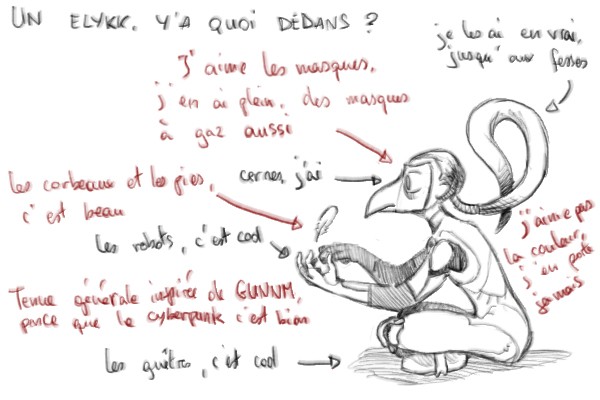 UN ELYKK. Y'A QUOI DEDANS ?
je les ai en vrai,
jusqu'aux fesses
J'aime les masques,
j'en ai plein, des masques
à gaz aussi
cernes, j'ai
les corbeaux et les pies,
c'est beau
les robots, c'est cool
j'aime pas
la couleur,
j'en porte
jamais
Tenue générale inspirée de GUNNM,
parce que le cyberpunk c'est bien
les guêtres, c'est cool